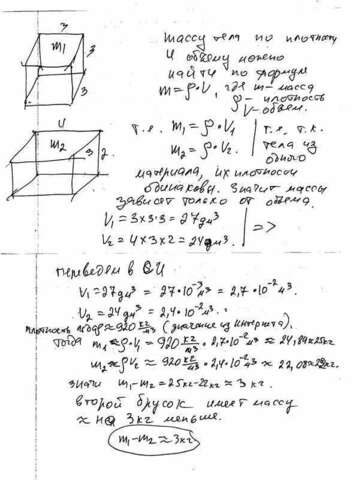 3
m₁
3
3
массу тела по плотности
и объему можно
найти по формуле
m = ρ·V, где m- масса
ρ - плотность
V- объем.
4
m₂
3
2
т.е. m₁ = ρ·V₁
m₂ = ρ·V₂.
т.е. т.к.
тела из
одного
материала, их плотности
одинаковы. Значит массы
зависят только от объема.
V₁ = 3×3·3 = 27дм³
V₂ = 4×3×2 = 24дм³
=>
переведем в СИ
V₁ = 27дм³ = 27·10⁻³м³ = 2,7·10⁻²м³
V₂ = 24дм³ = 2,4·10⁻²м³.
плотность ≈ 920 кг/м³ (значение из Интернета).
тогда m₁ ≈ ρV₁ = 920 кг/м³ · 2,7·10⁻²м³ ≈ 24,84≈25кг
m₂ ≈ ρV₂ ≈ 920 кг/м³ · 2,4·10⁻²м³ ≈ 22,08≈22кг.
значит m₁-m₂ = 25кг-22кг ≈ 3кг.
второй брусок имеет массу
≈ на 3кг меньше.
m₁-m₂ ≈ 3кг